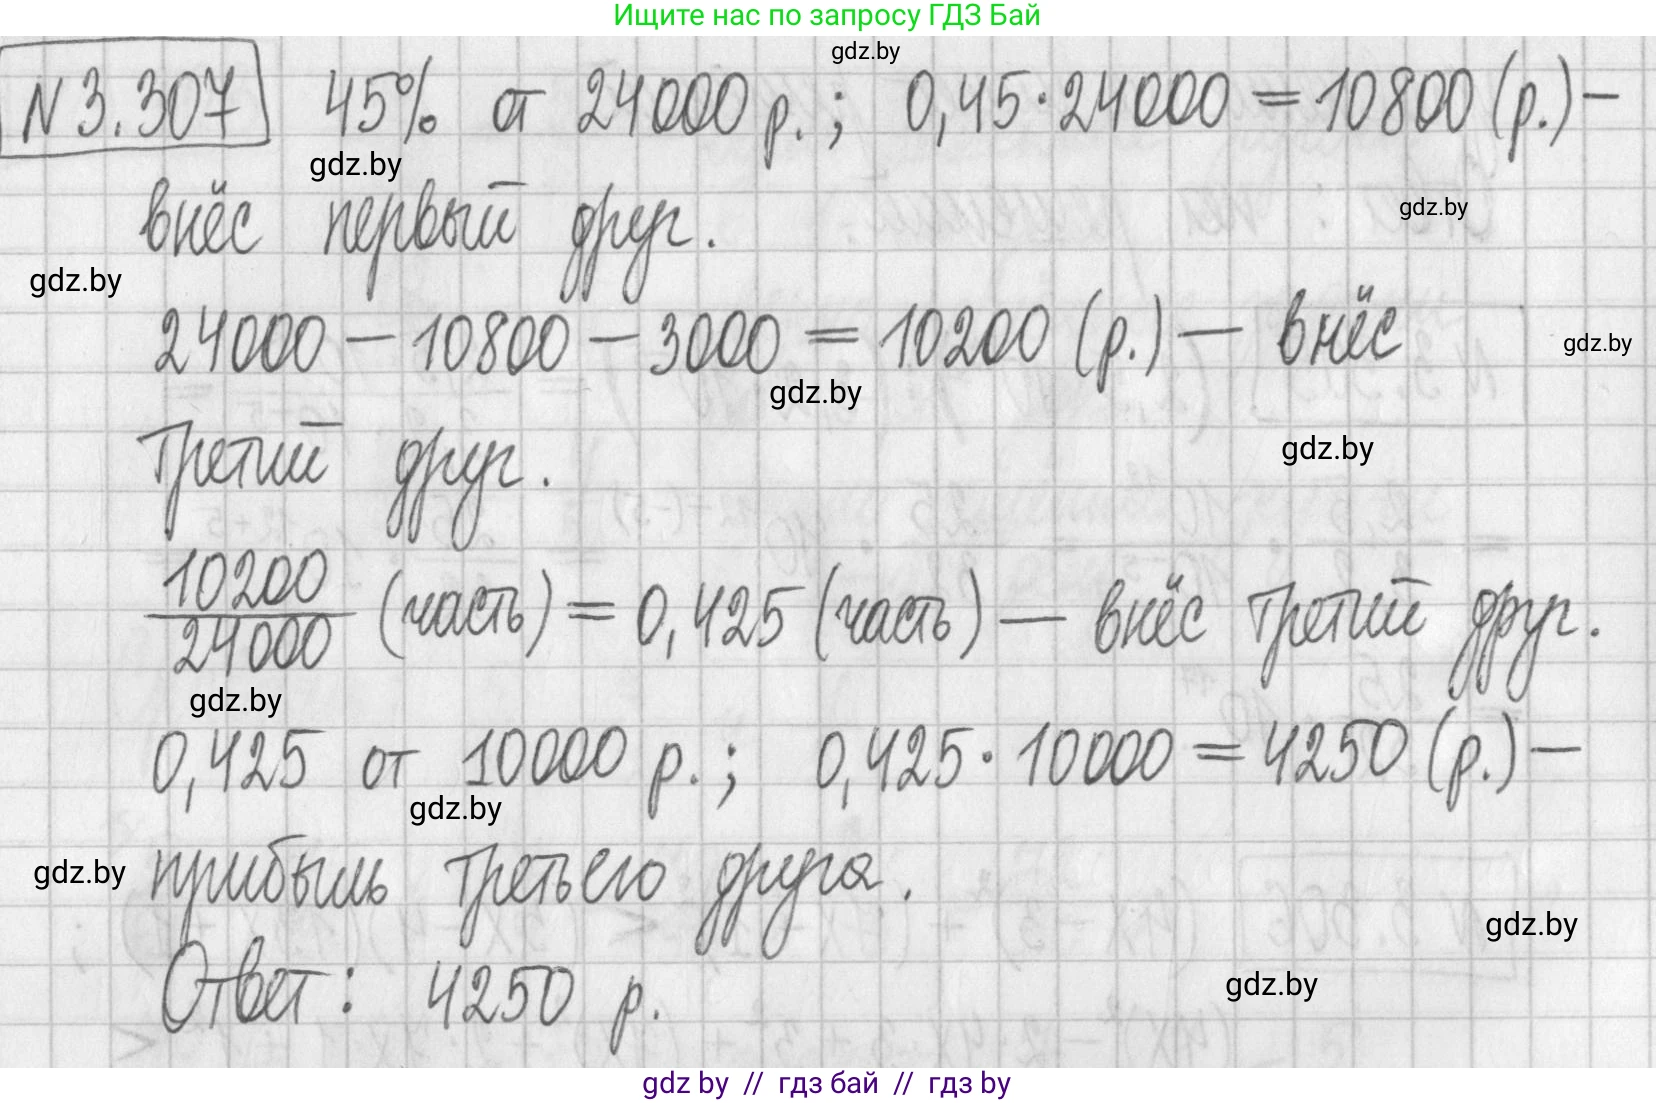 Ищите нас по запросу ГДЗ Бай
gdz.by
N 3.307 45% от 24000 р.; 0,45·24000 = 10800 (р.) –
gdz.by
gdz.by
внёс первый друг.
gdz.by
24000 – 10800 – 3000 = 10200 (р.) – внёс
gdz.by
gdz.by
третий друг.
gdz.by
10200/24000 (часть) = 0,425 (часть) – внёс третий друг.
gdz.by
0,425 от 10000 р.; 0,425·10000 = 4250 (р.) –
gdz.by
прибыль третьего друга.
gdz.by
gdz.by
Ответ: 4250 р.
gdz.by
gdz by // гдз бай // гдз by